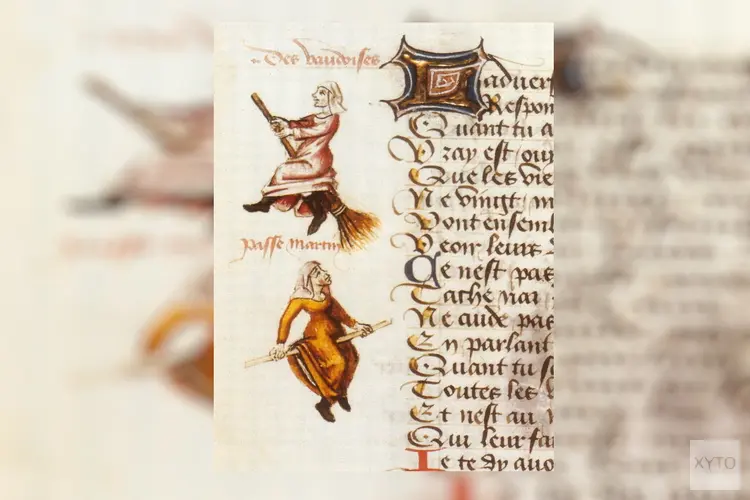 Des vaudoises
passe martin
Ladvers
Respon
Quant tu a
Vray est / our
Que les vie
Ne vingt / m
Vont ensem
Veoir leurs
Ce nest pas
Tache nar
Ne cuide pas
En parlant
Quant tu s
Toutes les
Et nest au
Qui leur fa
Ie te dy avo
XYTO